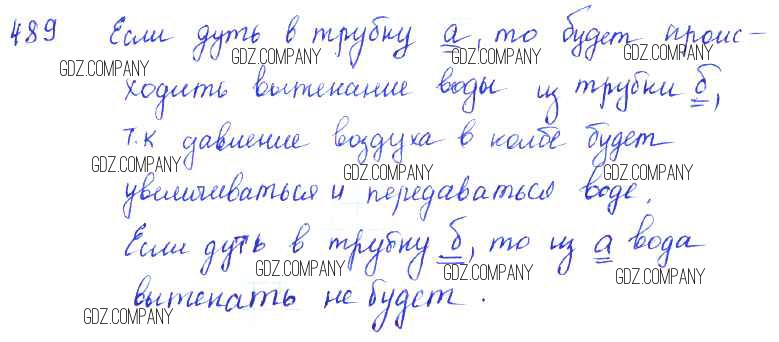 489 Если дуть в трубку а, то будет проис-
GDZ.COMPANY GDZ.COMPANY GDZ.COMPANY GDZ.COMPANY
ходить вытекание воды из трубки б,
т.к давление воздуха в колбе будет
GDZ.COMPANY GDZ.COMPANY GDZ.COMPANY
увеличиваться и передаваться воде.
Если дуть в трубку б, то из а вода
GDZ.COMPANY GDZ.COMPANY GDZ.COMPANY
вытекать не будет.
GDZ.COMPANY